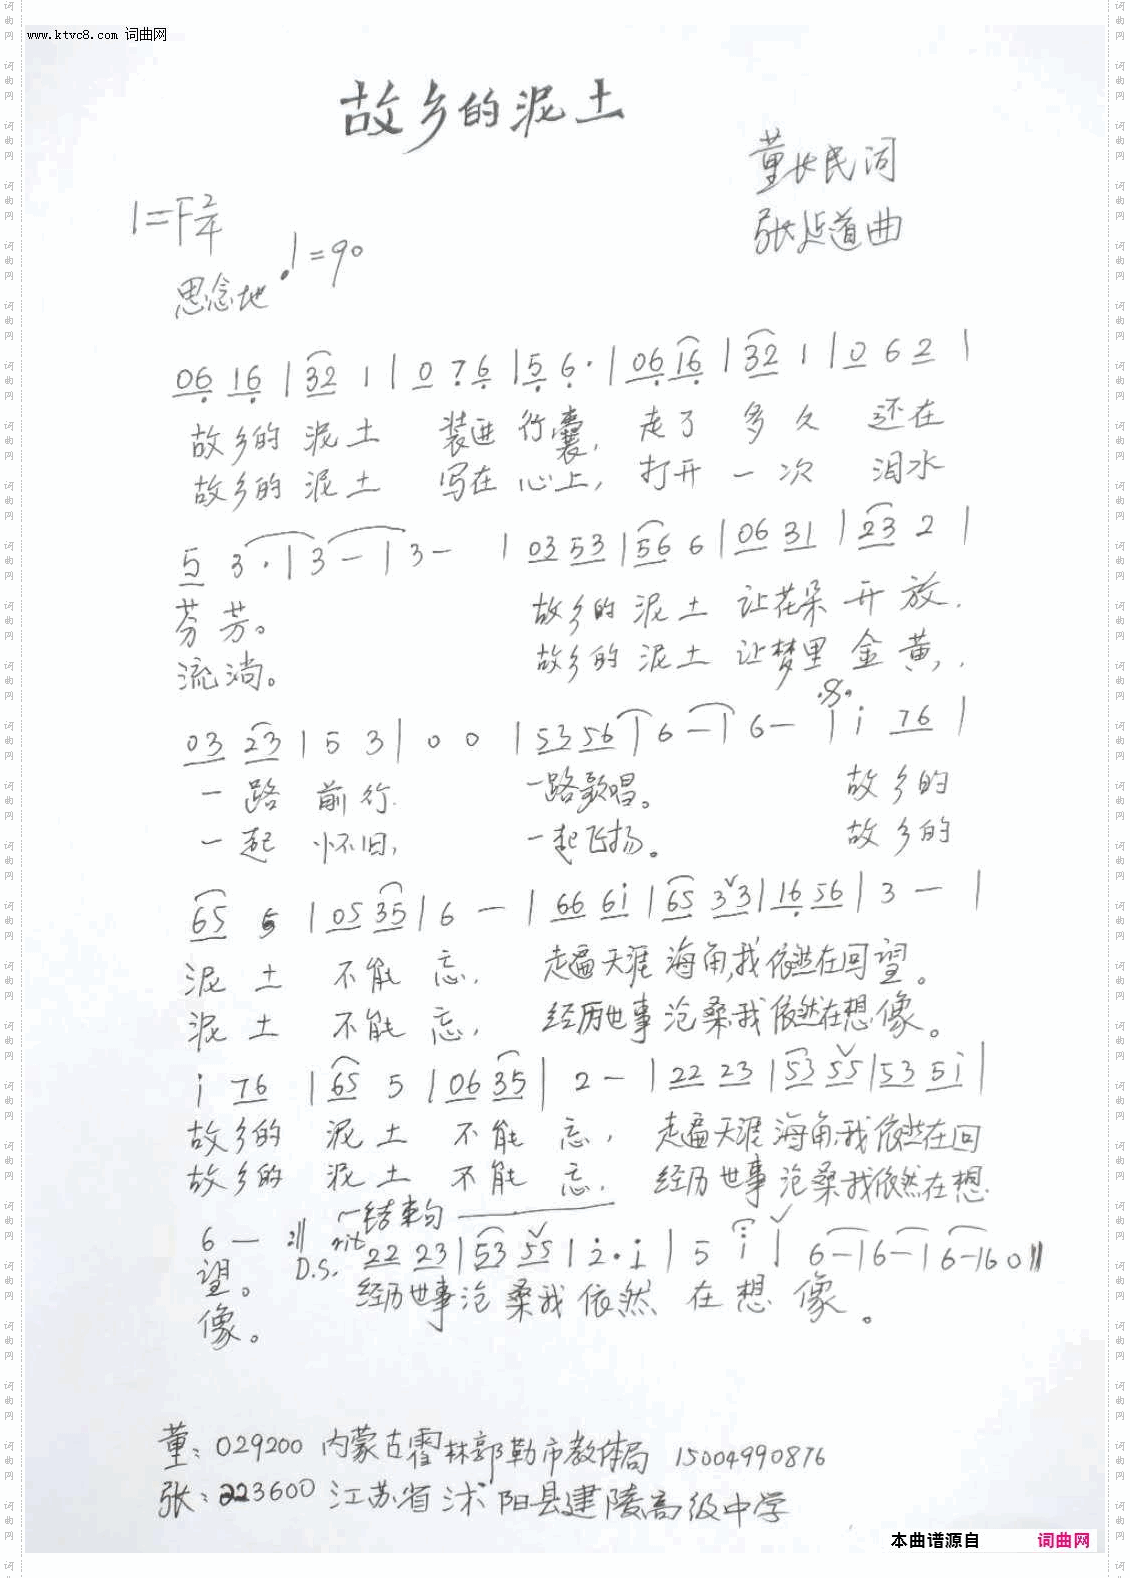 www.ktvc8.com 词曲网
故乡的泥土
董长民词
张延道曲
1=F 2/4
思念地 ♩=90
06 16 | 32 1 | 0 7 6 | 5 6· | 06 16 | 32 1 | 0 6 2 |
故乡的 泥土 装进行囊, 走了 多久 还在
故乡的 泥土 写在心上, 打开 一次 泪水
5 3· | 3 — | 3 — | 03 53 | 56 6 | 06 31 | 23 2 |
芬芳。 故乡的 泥土 让花朵 开放.
流淌。 故乡的 泥土 让梦里 金黄,
03 23 | 5 3 | 0 0 | 53 56 | 6 — | 6 — | i 76 |
一路 前行. 一路歌唱。 故乡的
一起 怀旧, 一起飞扬。 故乡的
65 5 | 05 35 | 6 — | 66 6i | 65 3 3 | 16 56 | 3 — |
泥土 不能 忘. 走遍天涯 海角,我依然在回望。
泥土 不能 忘, 经历世事 沧桑我依然在想像。
i 76 | 65 5 | 06 35 | 2 — | 22 23 | 53 55 | 53 5i |
故乡的 泥土 不能 忘, 走遍天涯 海角,我依然在回
故乡的 泥土 不能 忘. 经历世事 沧桑我依然在想
结束句
6 — :‖ D.S. rit 22 23 | 53 55 | i· i | 5 i | 6 — | 6 — | 6 — | 6 0 ‖
望。 经历世事沧桑我依然 在想像。
像。
董: 029200 内蒙古霍林郭勒市教体局 15004990876
张: 223600 江苏省沭阳县建陵高级中学
本曲谱源自 词曲网